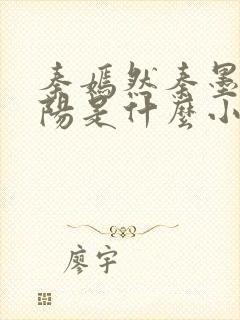 秦嫣然秦墨
陽是什麼小
廖宇